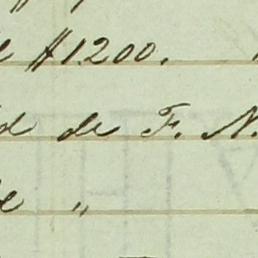 $1.200.
de F. N.
e "